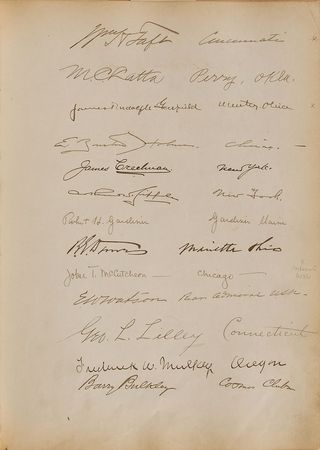 Wm H Taft Cincinnati
M.C. Latta Perry, Okla.
James Rudolph Garfield Mentor Ohio
E Burton Holmes Chicago. -
James Creelman New York.
New York.
Robert H. Gardiner Gardiner Maine
Ohio
John T. McCutcheon - Chicago -
E W Watson Rear Admiral USN.
Geo. L. Lilley Connecticut
Frederick W. Mulkey Oregon
Barry Bulkley Cosmos Club